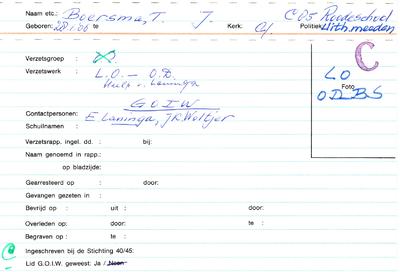 Naam etc.: Boersma, T. J. C 05 Roodeschool
Geboren: 28.1.06 te Kerk: Gef Politiek: Uithmeeden
C
Verzetsgroep :
Verzetswerk : L.O. – O.D.
Hulp v. Laninga
LO
Foto
O D B S
G O I W
Contactpersonen: E Laninga, J.R. Woltjer
Schuilnamen :
Verzetsrapp. ingel. dd. : bij:
Naam genoemd in rapp.:
op bladzijde:
Gearresteerd op : door:
Gevangen gezeten in :
Bevrijd op : uit : door:
Overleden op: door: te :
Begraven op : te :
Ingeschreven bij de Stichting 40/45:
Lid G.O.I.W. geweest: Ja / Neen